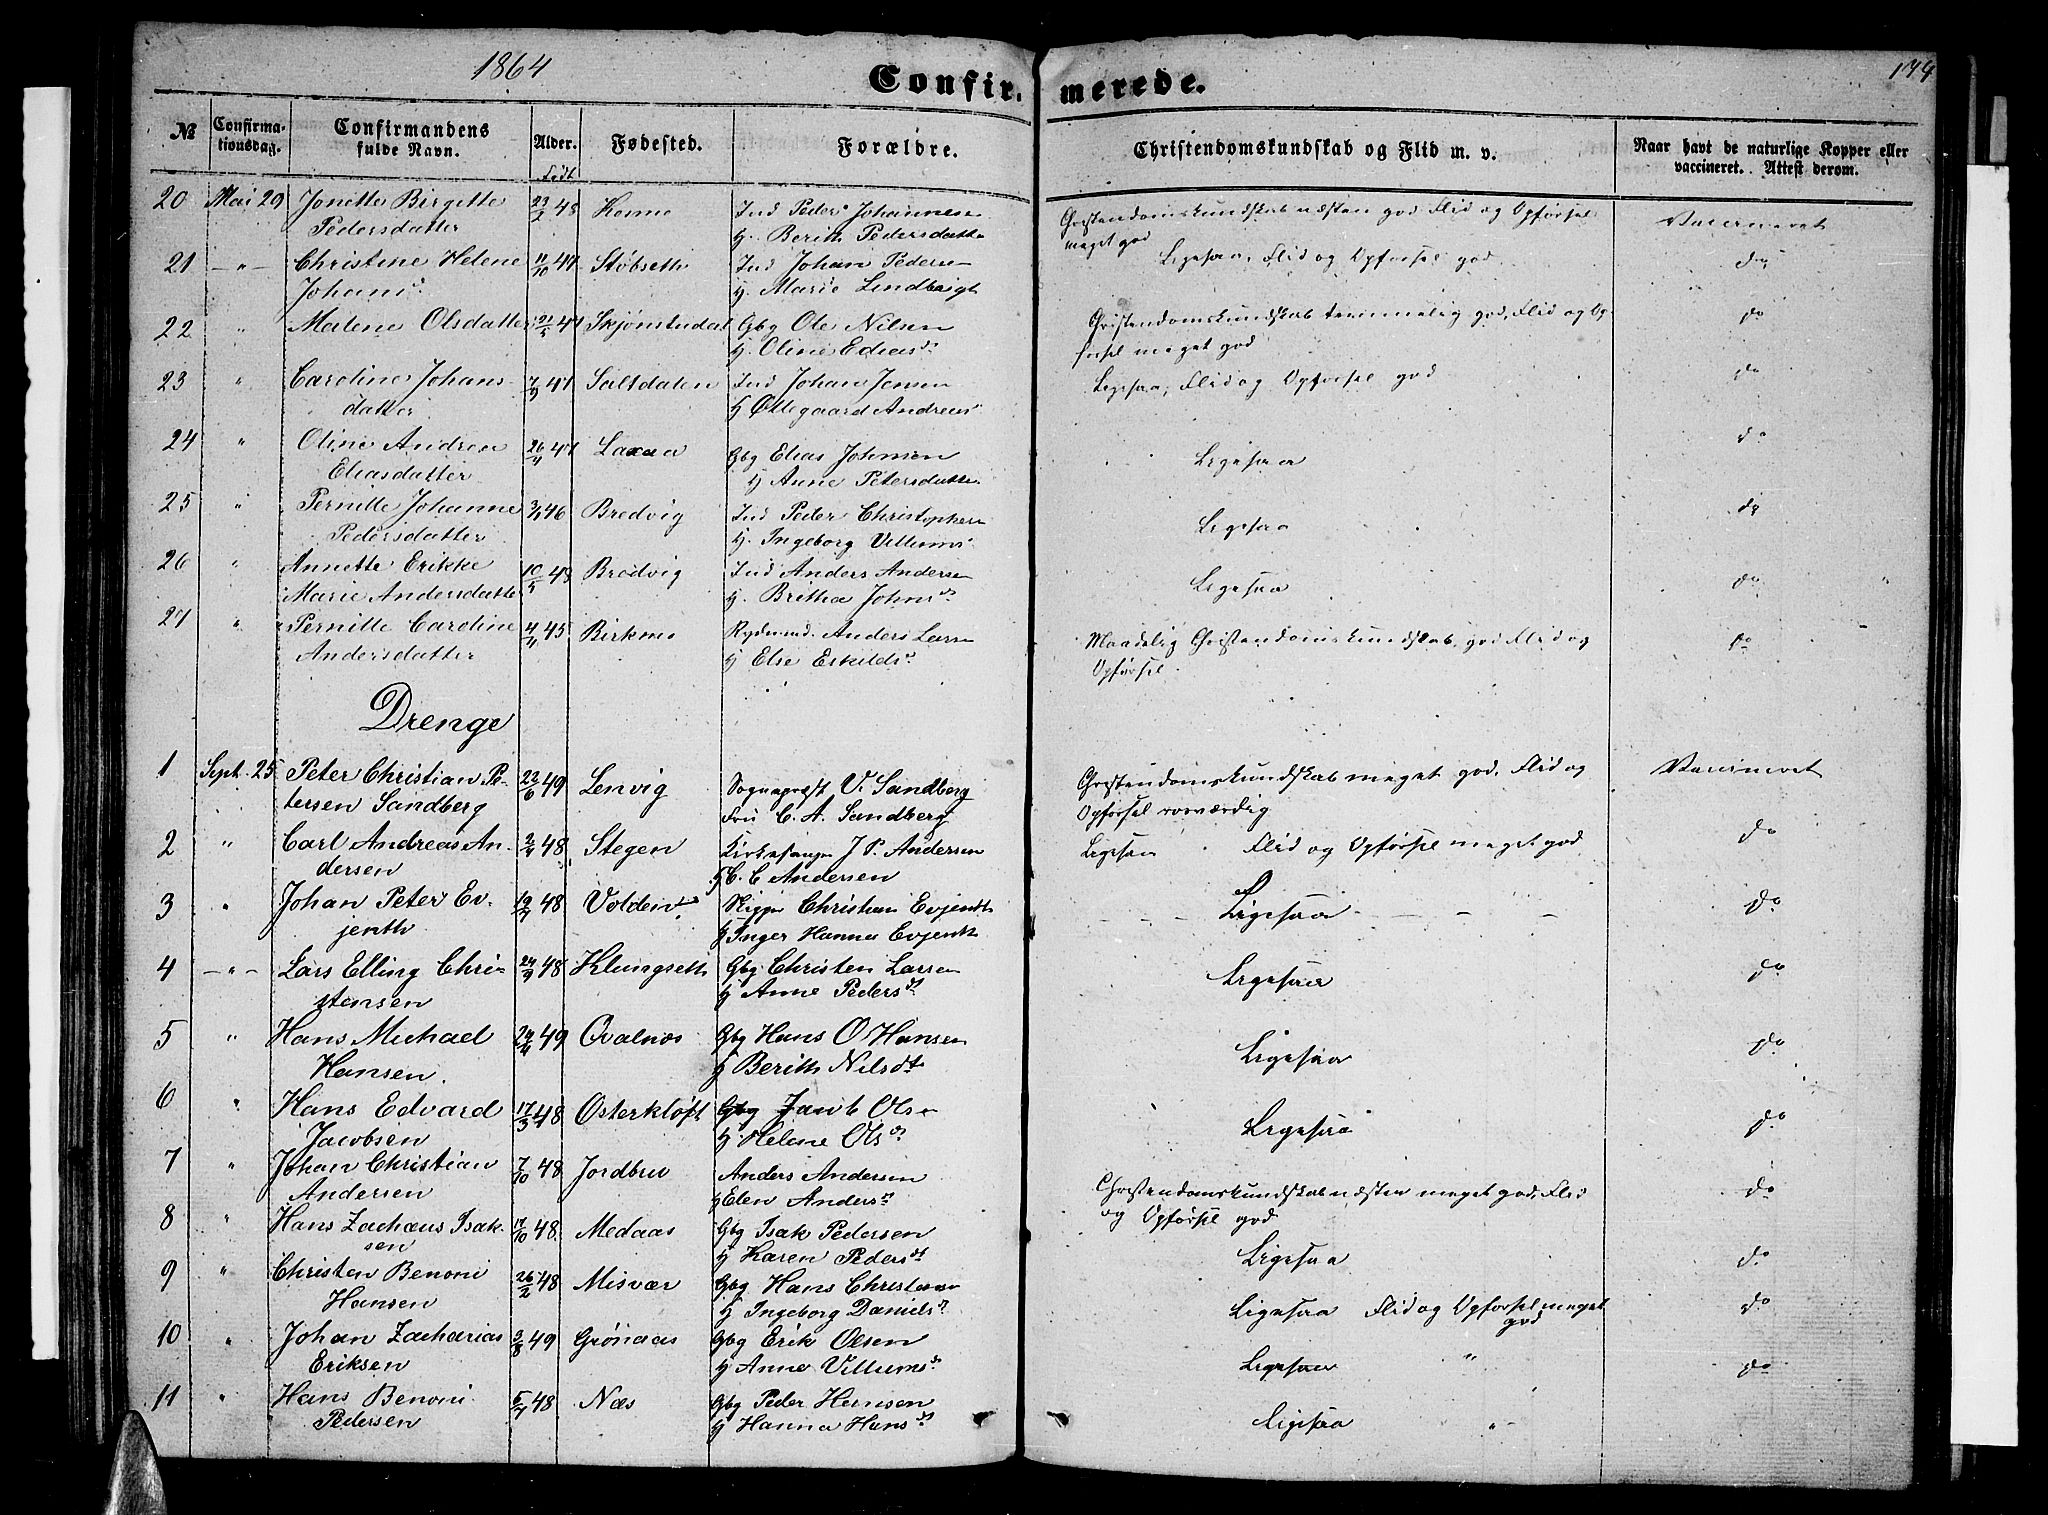 1864
Confir- merede.
179
№ Confirma- Confirmandens Alder. Fødested. Forældre. Christendomskundskab og Flid m. v. Naar havt de naturlige Kopper eller
tionsdag. fulde Navn. Født vaccineret. Attest derom.
20 Mai 29 Jonette Birgitte 23/2 48 Ind Peder Johannesen Christendomskundskab næsten god Flid og Opførsel Vaccineret
Pedersdatter H. Berith Pedersdatter meget god
21 -"- Christine Helene 11/10 47 Støbseth Ind Johan Pedersen Ligesaa, Flid og Opførsel god do
Johans d. H. Marie Lindbrigt
22 " Malene Olsdatter 21/5 47 Skjønstudal Gbg Ole Nilsen Christendomskundskab temmelig god, Flid og Op- do
H. Oline Edias d. førsel meget god
23 " Caroline Johans- 7/9 47 Saltdalen Ind Johan Jensen Ligesaa, Flid og Opførsel god do
datter H Ottegaard Andreas
24 " Oline Andrea 26/4 47 Laxaa Gbg Elias Johnsen Ligesaa do
Eliasdatter H Anne Petersdatter
25 " Pernille Johanne 46 Bredvig Ind Peder Christophersen Ligesaa do
Pedersdatter H. Ingeborg Villums
26 " Annette Erikke 10/5 48 Bredvig Ind Anders Andersen Ligesaa do
Marie Andersdatter H. Britha Johns d.
27 " Pernille Caroline 4/4 45 Birknes Rydnmd. Anders Larsen Maadelig Christendomskundskab, god Flid og do
Andersdatter H Else Eskilds d. Opførsel
Drenge
1 Sept. 25 Peter Christian Pe- 22/6 49 Lenvig Sognepræst V. Sandberg Christendomskundskab meget god, Flid og Vaccineret
tersen Sandberg Fru C. A. Sandberg Opførsel rosværdig
2 " Carl Andreas An- 2/4 48 Stegen Kirkesanger J P. Andersen Ligesaa Flid og Opførsel meget god do
dersen H C. C Andersen
3 " Johan Peter Ev- 19/7 48 Volden Skipper Christian Evjenth Ligesaa do
jenth H Inger Hanna Evjenth
4 -"- Lars Elling Chri- 24/9 48 Klungseth Gbg Christen Larsen Ligesaa do
stensen H Anne Peders dt
5 " Hans Michael 24/4 49 Qvalnæs Gbg Hans O Hansen Ligesaa do
Hansen. H Berith Nilsdt
6 " Hans Edvard 17/3 48 Osterkløft Gbg Jacob Olsen Ligesaa do
Jacobsen H Helene Ols d.
7 " Johan Christian 7/10 48 Jordbru Anders Andersen Christendomskundskab næsten meget god, Flid do
Andersen H Elen Anders d. og Opførsel god
8 " Hans Zachæus Isak- 17/10 48 Medaas Gbg Isak Pedersen Ligesaa do
sen H Karen Peders dt
9 " Christen Benoni 26/2 48 Misvær Gbg Hans Christensen Ligesaa Flid og Opførsel meget do
Hansen H Ingeborg Daniels d. god
10 " Johan Zacharias 3/8 49 Grønaas Gbg Erik Olsen Ligesaa " do
Eriksen H Anne Villums d.
11 " Hans Benoni 5/7 48 Næs Gbg Peder Hemsen Ligesaa "
Pedersen H Hanna Hans d.